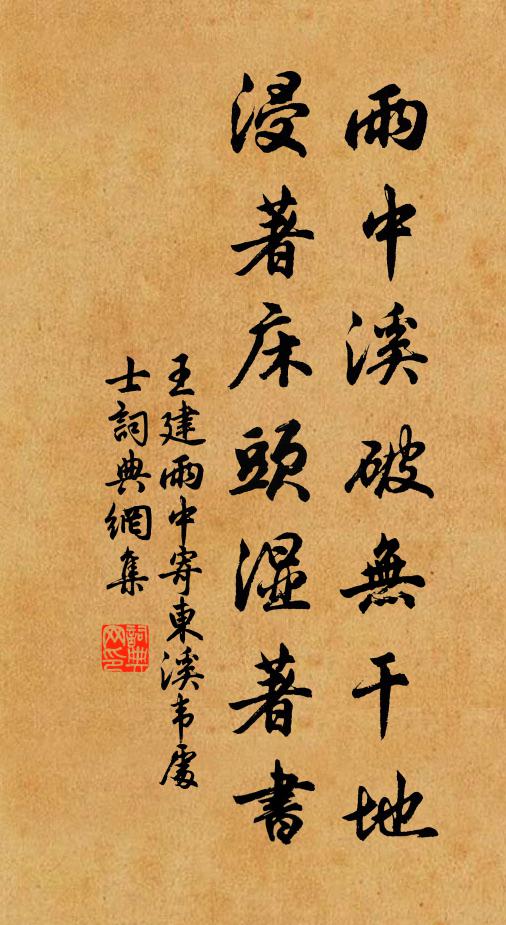 雨中溪破無干地
浸著床頭濕著書
王建雨中寄東溪韦處
士詞典網集
詞典
网印